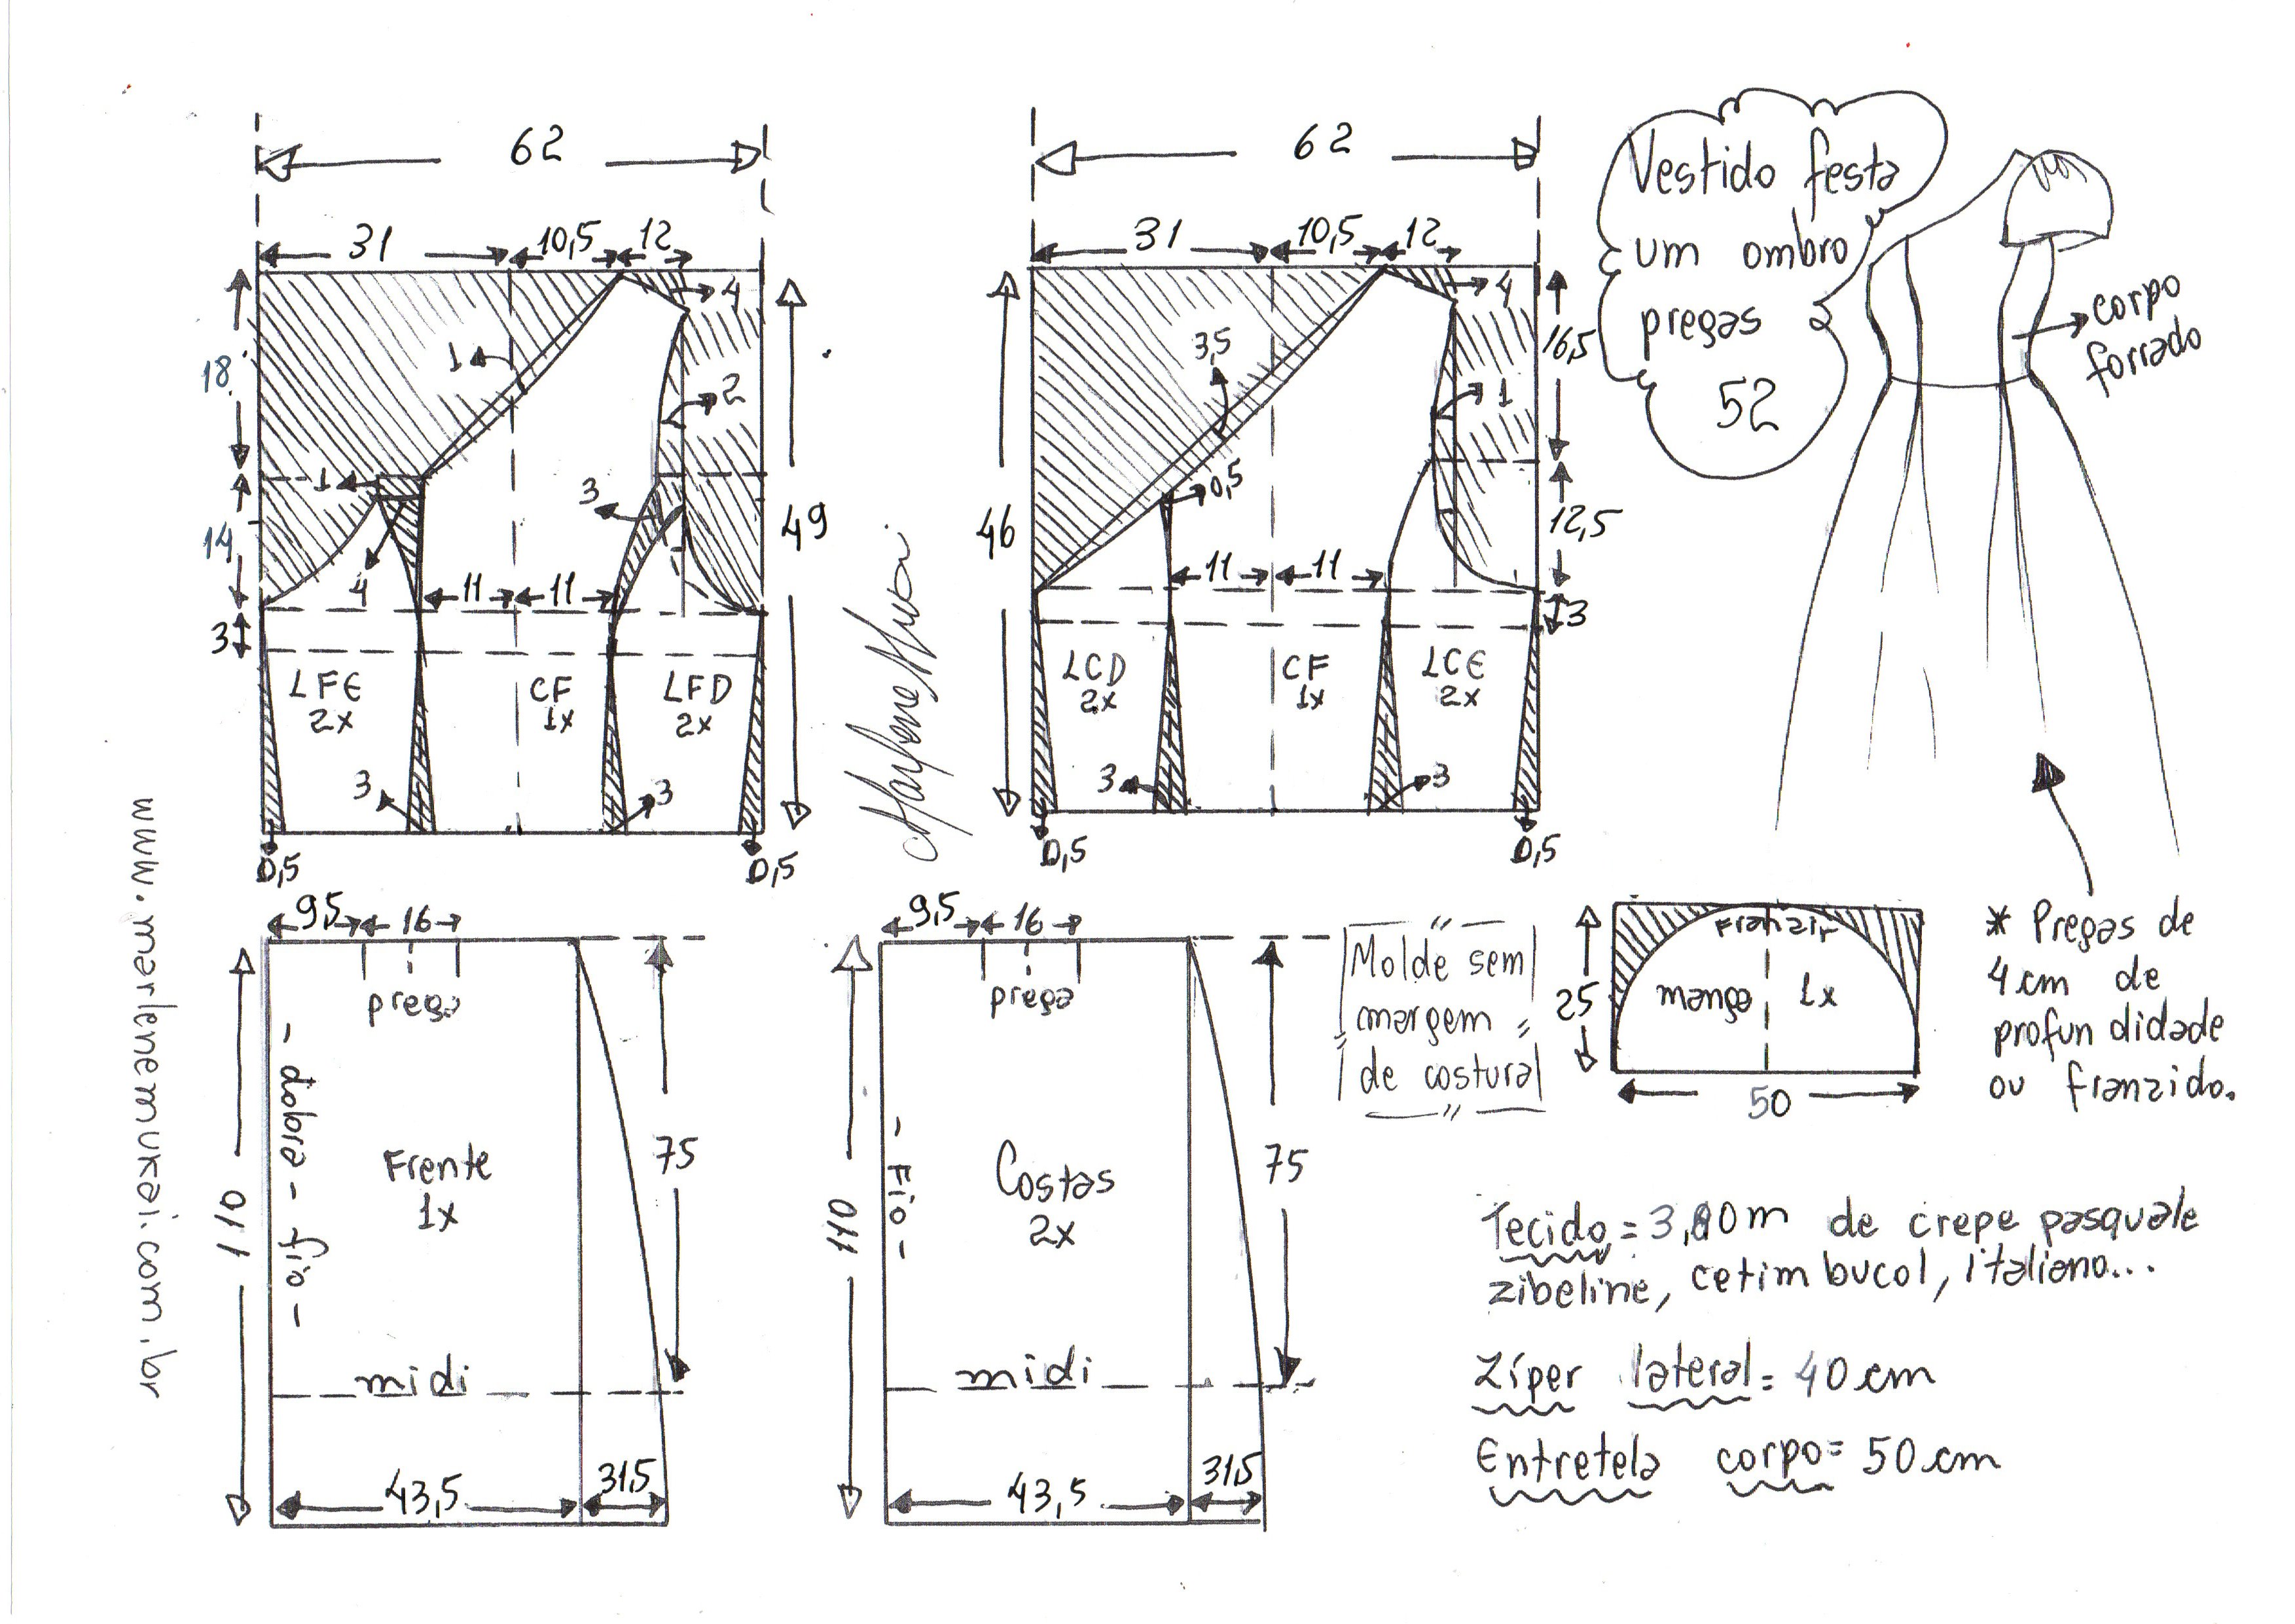 62
31
10,5
12
4
1
18
2
1
3
14
4
11
11
49
3
LFE
2x
CF
1x
LFD
2x
3
3
0,5
0,5
62
31
10,5
12
4
3,5
16,5
1
0,5
46
12,5
11
11
3
LCD
2x
CF
1x
LCE
2x
3
3
0,5
0,5
Vestido festa
um ombro
pregas
52
corpo
forrado
www.marlenemukai.com.br
9,5
16
prega
110
- dobra - fio -
Frente
1x
75
midi
43,5
31,5
9,5
16
prega
110
- Fio -
Costas
2x
75
midi
43,5
31,5
Molde sem
margem
de costura
Franzir
25
manga 1x
50
* Pregas de
4cm de
profundidade
ou franzido.
Tecido = 3,80m de crepe pasquale
zibeline, cetim bucol, italiano...
Zíper lateral = 40cm
Entretela corpo = 50cm